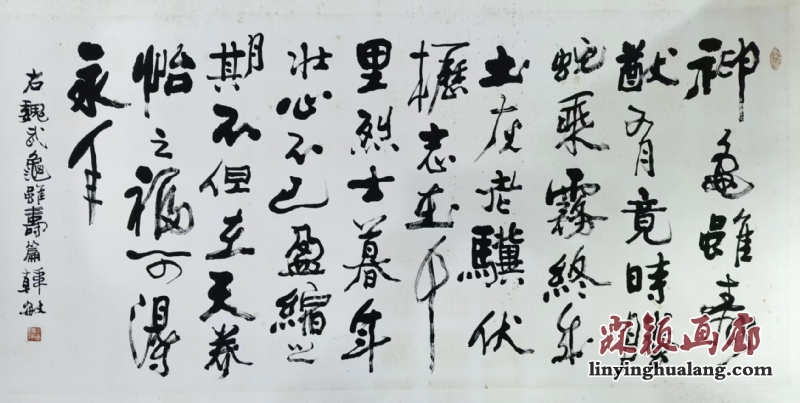 神龜雖壽
猷有竟時騰
蛇乘霧終成
土灰老驥伏
櫪志在千
里烈士暮年
壯心不已盈縮之
期不但在天養
怡之福可得
永年
右魏武龜雖壽篇韓敏
颖画廊
linyinghualang.com